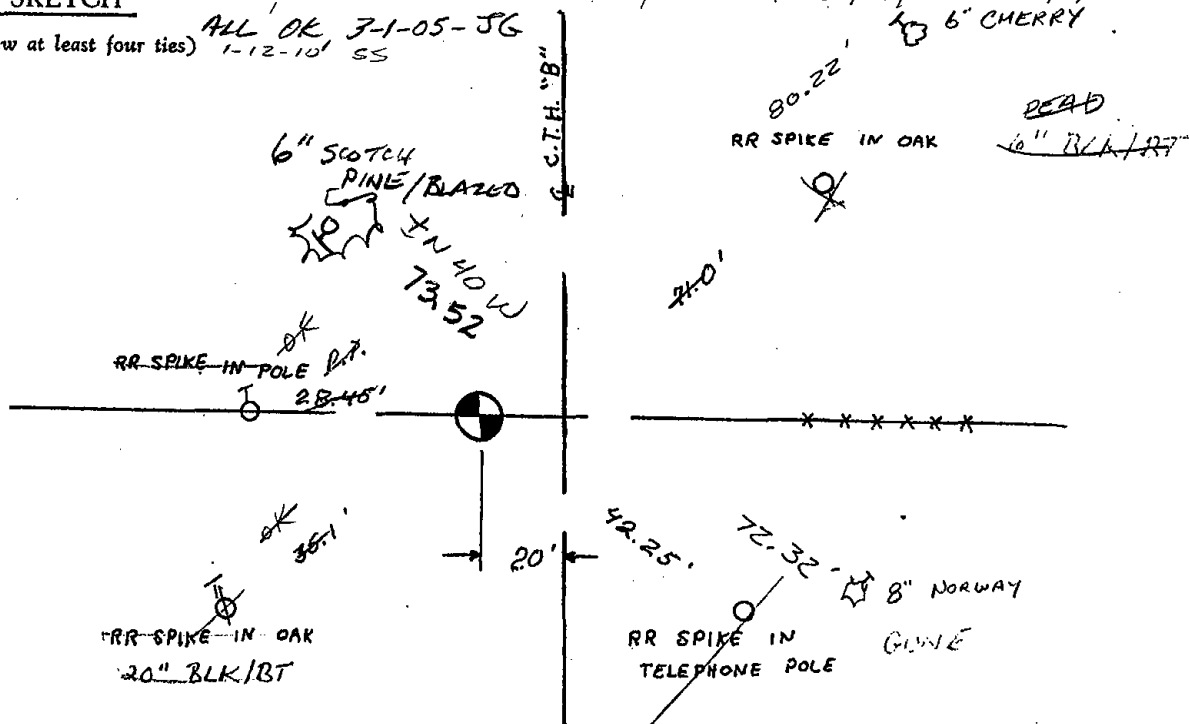 SKETCH
w at least four ties)
ALL OK 3-1-05-JG
1-12-10' SS
C.T.H. "B"
6" CHERRY
80.22'
RR SPIKE IN OAK
DEAD
6" BLK/BT
6" SCOTCH
PINE/BLAZED
±N 40 W
73.52
71.0'
OK
RR SPIKE IN POLE P.P.
28.45'
OK
35.1'
20'
42.25'
72.32'
8" NORWAY
GONE
RR SPIKE IN OAK
20" BLK/BT
RR SPIKE IN
TELEPHONE POLE